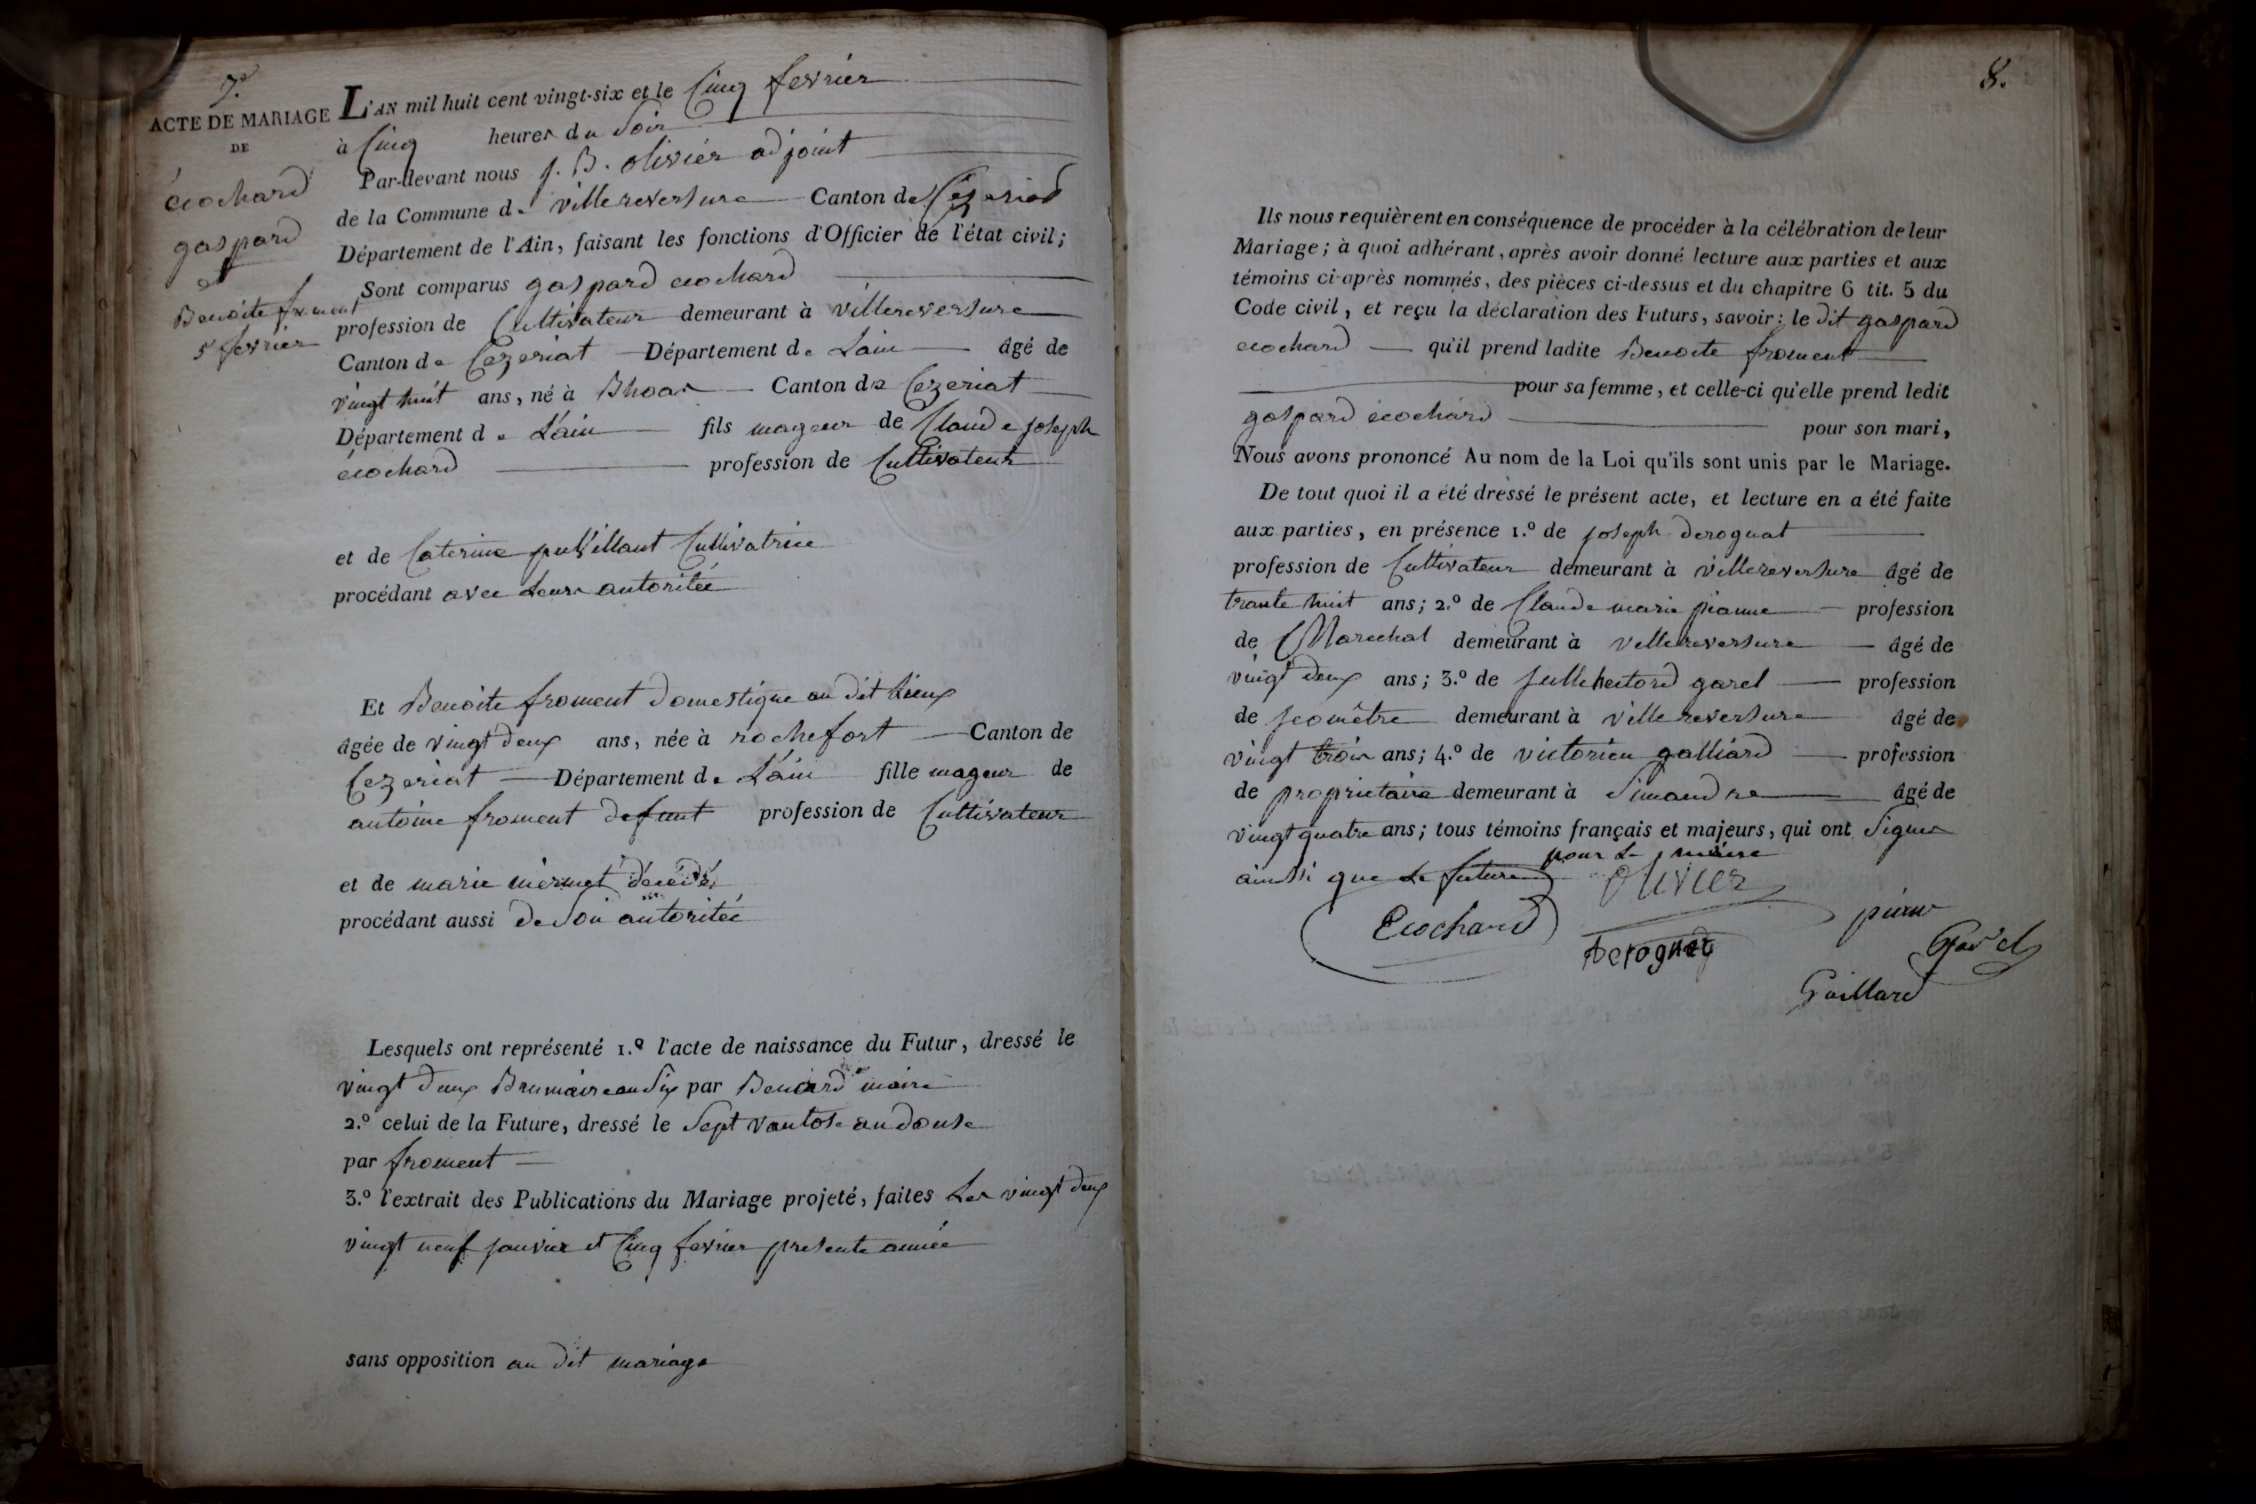 7.
ACTE DE MARIAGE
DE
écochard
gaspard
et
Benoite froment
5 fevrier
L'AN mil huit cent vingt-six et le Cinq fevrier
à Cinq heures du Soir
Par-devant nous J. B. olivier adjoint
de la Commune de villereversure Canton de Cezeriat
Département de l'Ain, faisant les fonctions d'Officier de l'état civil;
Sont comparus gaspard ecochard
profession de Cultivateur demeurant à villereversure
Canton de Cezeriat Département de Lain âgé de
vingt huit ans, né à Canton de Cezeriat
Département de L'ain fils mageur de Claude joseph
écochard profession de Cultivateur
et de Caterine Cultivatrice
procédant avec Leurs autoritée
Et Benoite froment domestique au dit Lieux
âgée de vingt deux ans, née à rochefort Canton de
Cezeriat Département de L'ain fille mageur de
antoine froment defunt profession de Cultivateur
et de marie mermet décédés
procédant aussi de Son autoritée
Lesquels ont représenté 1.º l'acte de naissance du Futur, dressé le
vingt deux Brumaire an Six par Benard maire
2.º celui de la Future, dressé le Sept vantose an douse
par froment
3.º l'extrait des Publications du Mariage projeté, faites Les vingt deux
vingt neuf janvier et Cinq fevrier presente année
sans opposition au dit mariage
8.
Ils nous requièrent en conséquence de procéder à la célébration de leur
Mariage; à quoi adhérant, après avoir donné lecture aux parties et aux
témoins ci-après nommés, des pièces ci-dessus et du chapitre 6 tit. 5 du
Code civil, et reçu la déclaration des Futurs, savoir: le dit gaspard
ecochard qu'il prend ladite Benoite froment
pour sa femme, et celle-ci qu'elle prend ledit
gaspard écochard pour son mari,
Nous avons prononcé Au nom de la Loi qu'ils sont unis par le Mariage.
De tout quoi il a été dressé le présent acte, et lecture en a été faite
aux parties, en présence 1.º de joseph deroguat
profession de Cultivateur demeurant à villereversure âgé de
trante huit ans; 2.º de Claude marie profession
de Marechal demeurant à villereversure âgé de
vingt deux ans; 3.º de garel profession
de jeomêtre demeurant à villereversure âgé de
vingt trois ans; 4.º de victorien galliard profession
de proprietaire demeurant à Simandre âgé de
vingt quatre ans; tous témoins français et majeurs, qui ont Signes
ainssi que Le futur
pour Le maire
Olivier
Ecochard
Garel
Gaillard